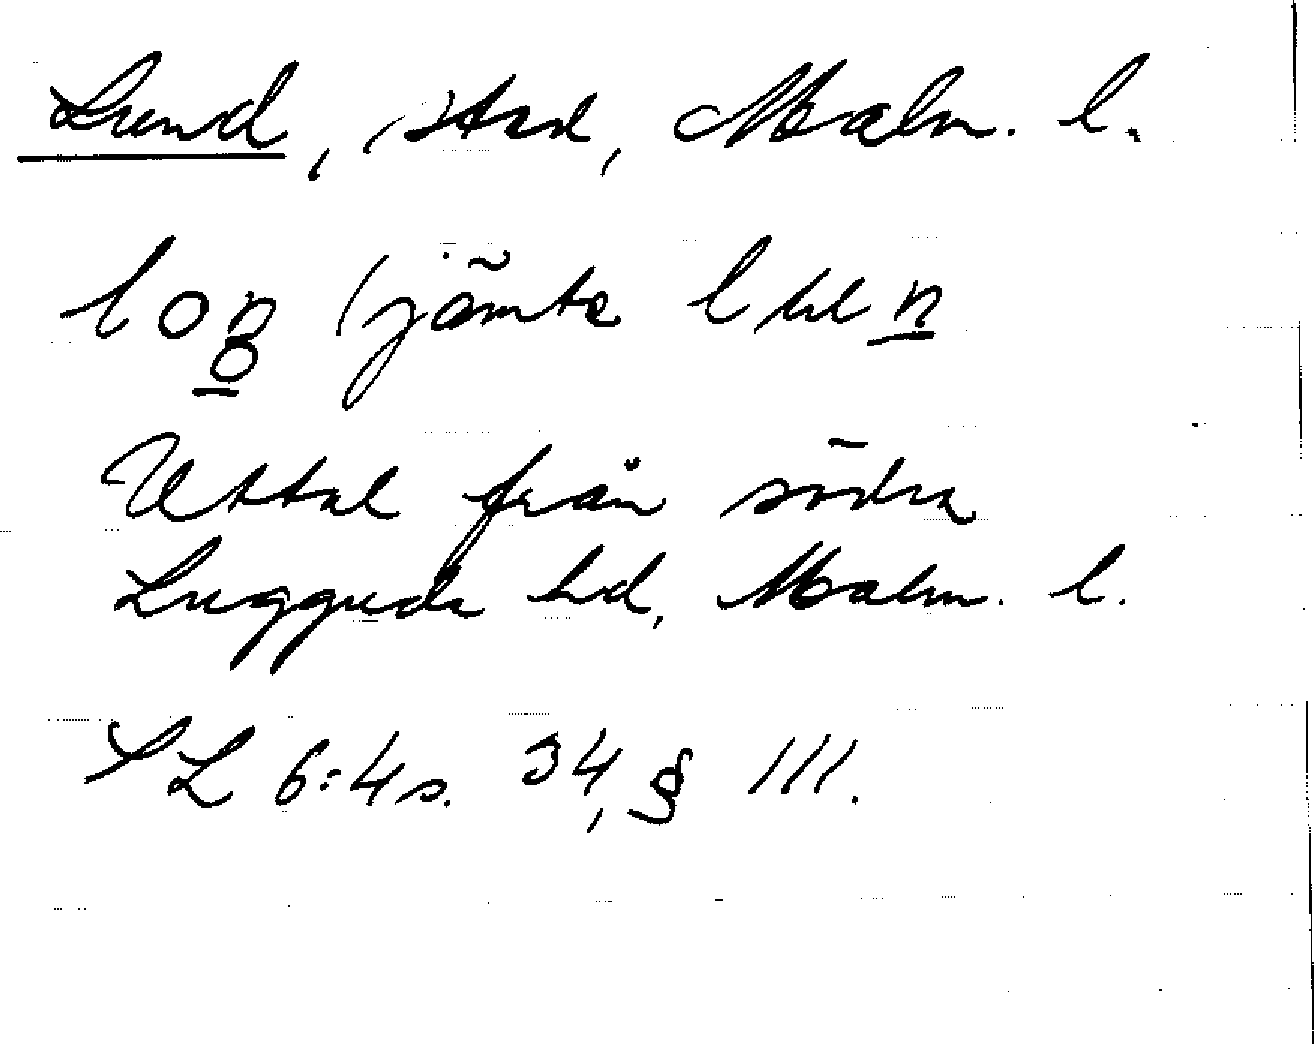 Lund, stad, Malm. l.
lon (jämte l till n
Uttal från södra
Luggude hd, Malm. l.
SL 6:4 s. 34, § 111.